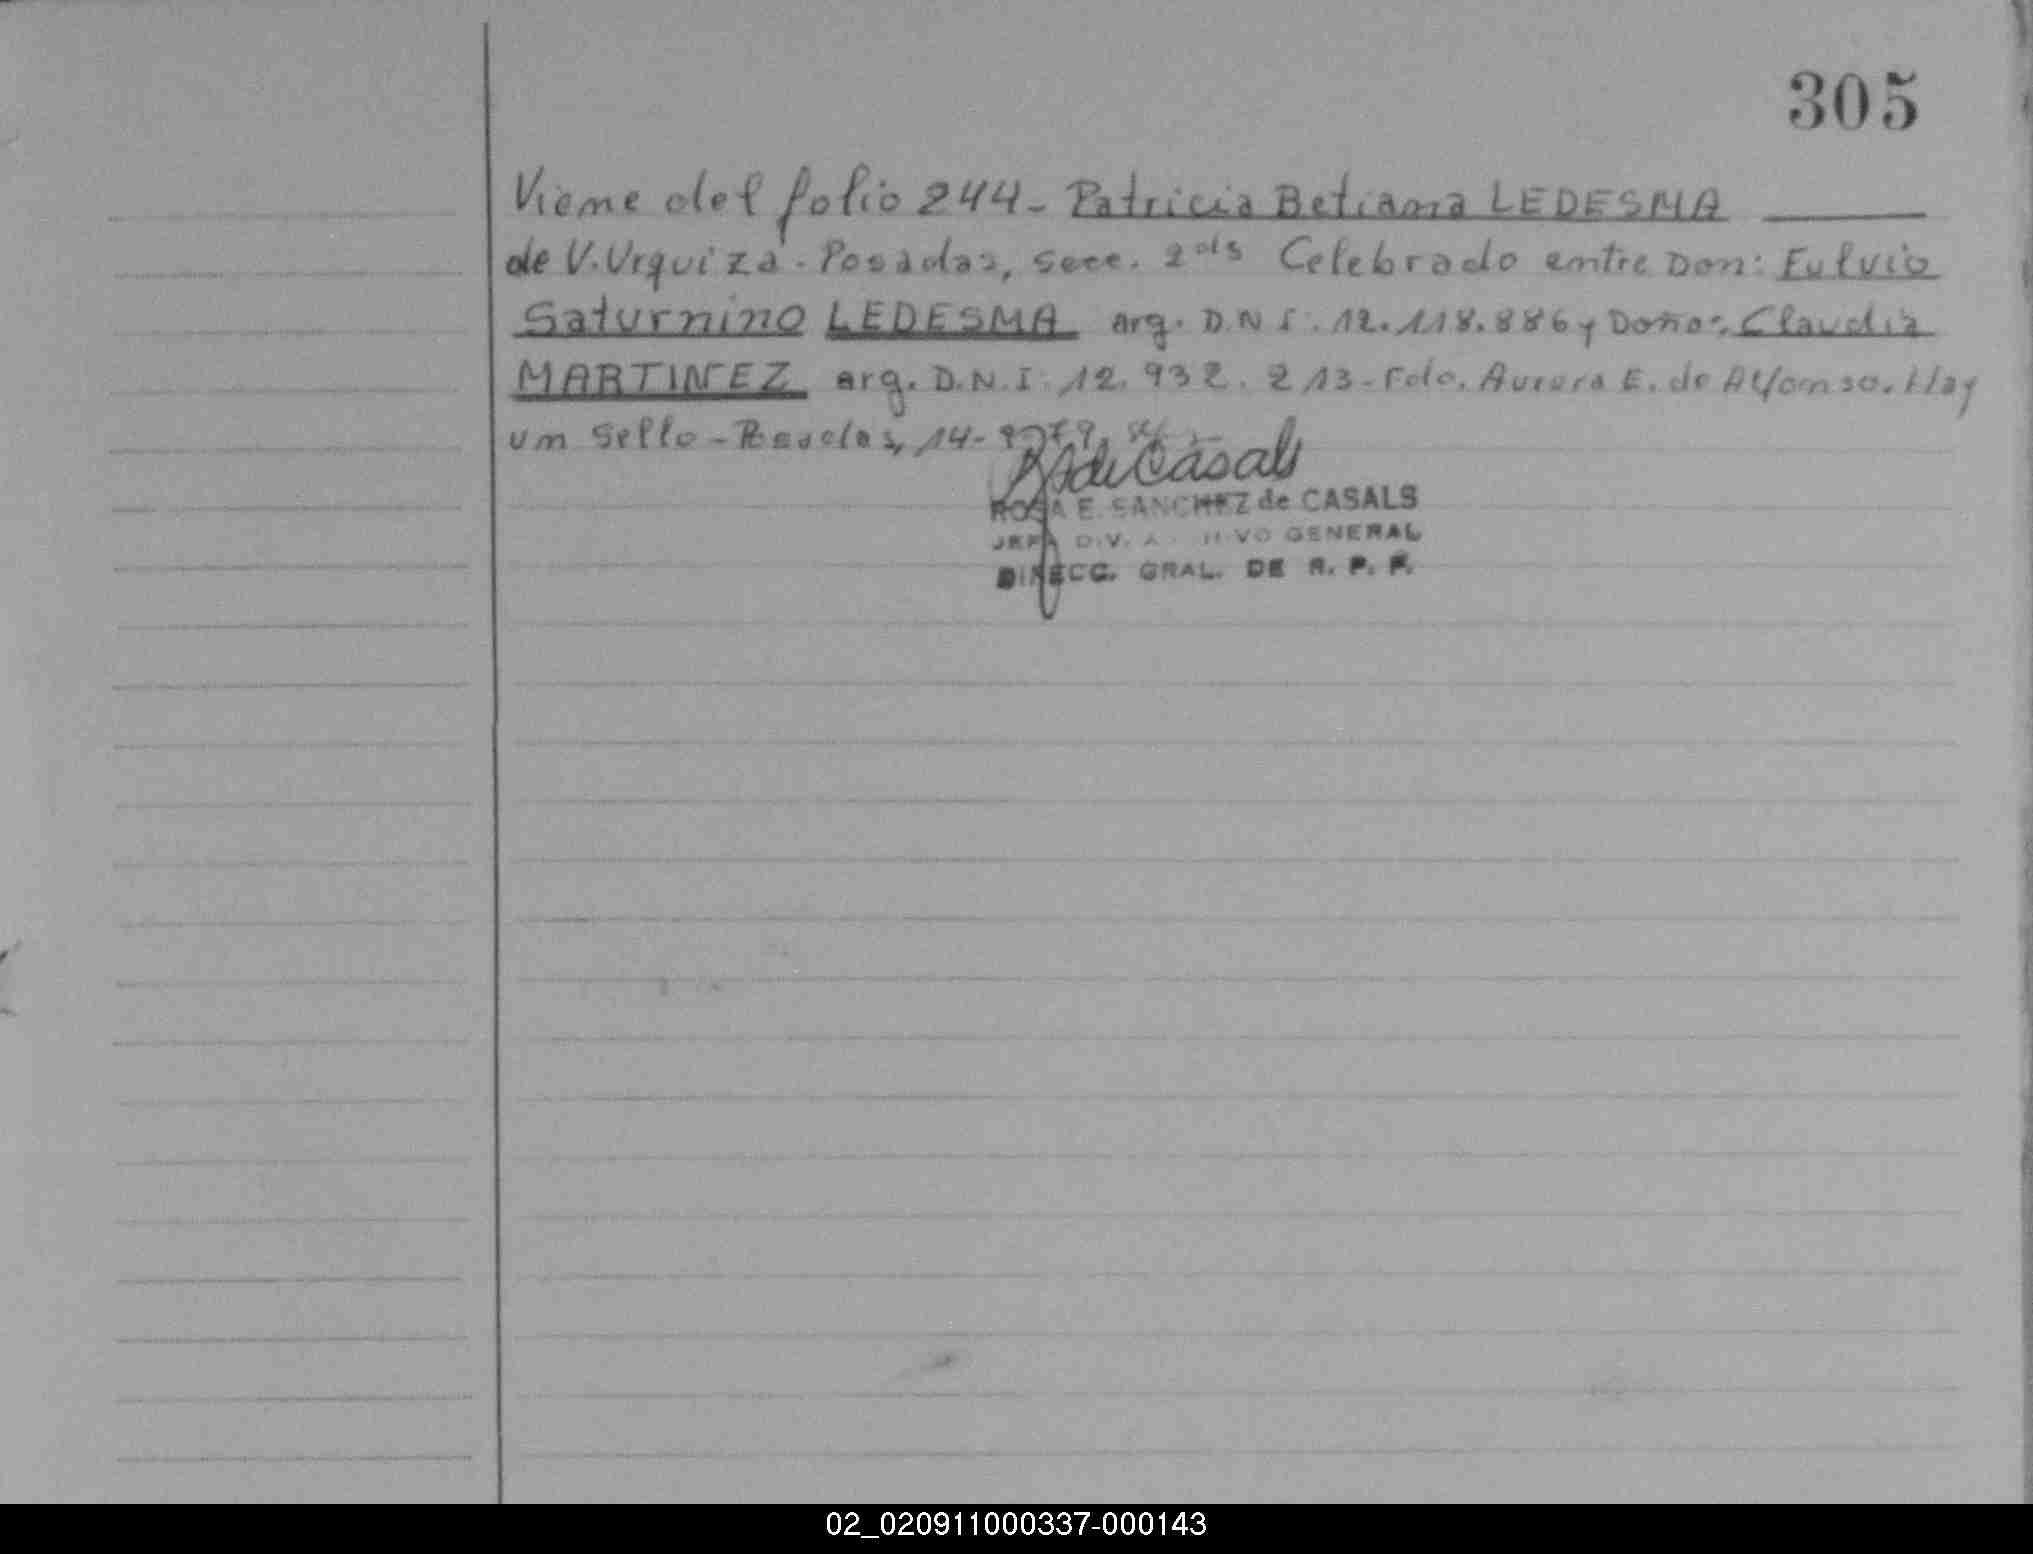 305
Viene del folio 244- Patricia Betiana LEDESMA
de V. Urquiza - Posadas, Secc. 2da Celebrado entre Don: Fulvio
Saturnino LEDESMA arg. D.N.I: 12.118.886 y Doña: Claudia
MARTINEZ arg. D.N.I: 12.932.213- Fdo. Aurora E. de Alfonso. Hay
un Sello - Posadas, 14-
de Casals
ROSA E. SANCHEZ de CASALS
JEFA DIV. GENERAL
DIRECC. GRAL. DE R. P. P.
02_020911000337-000143